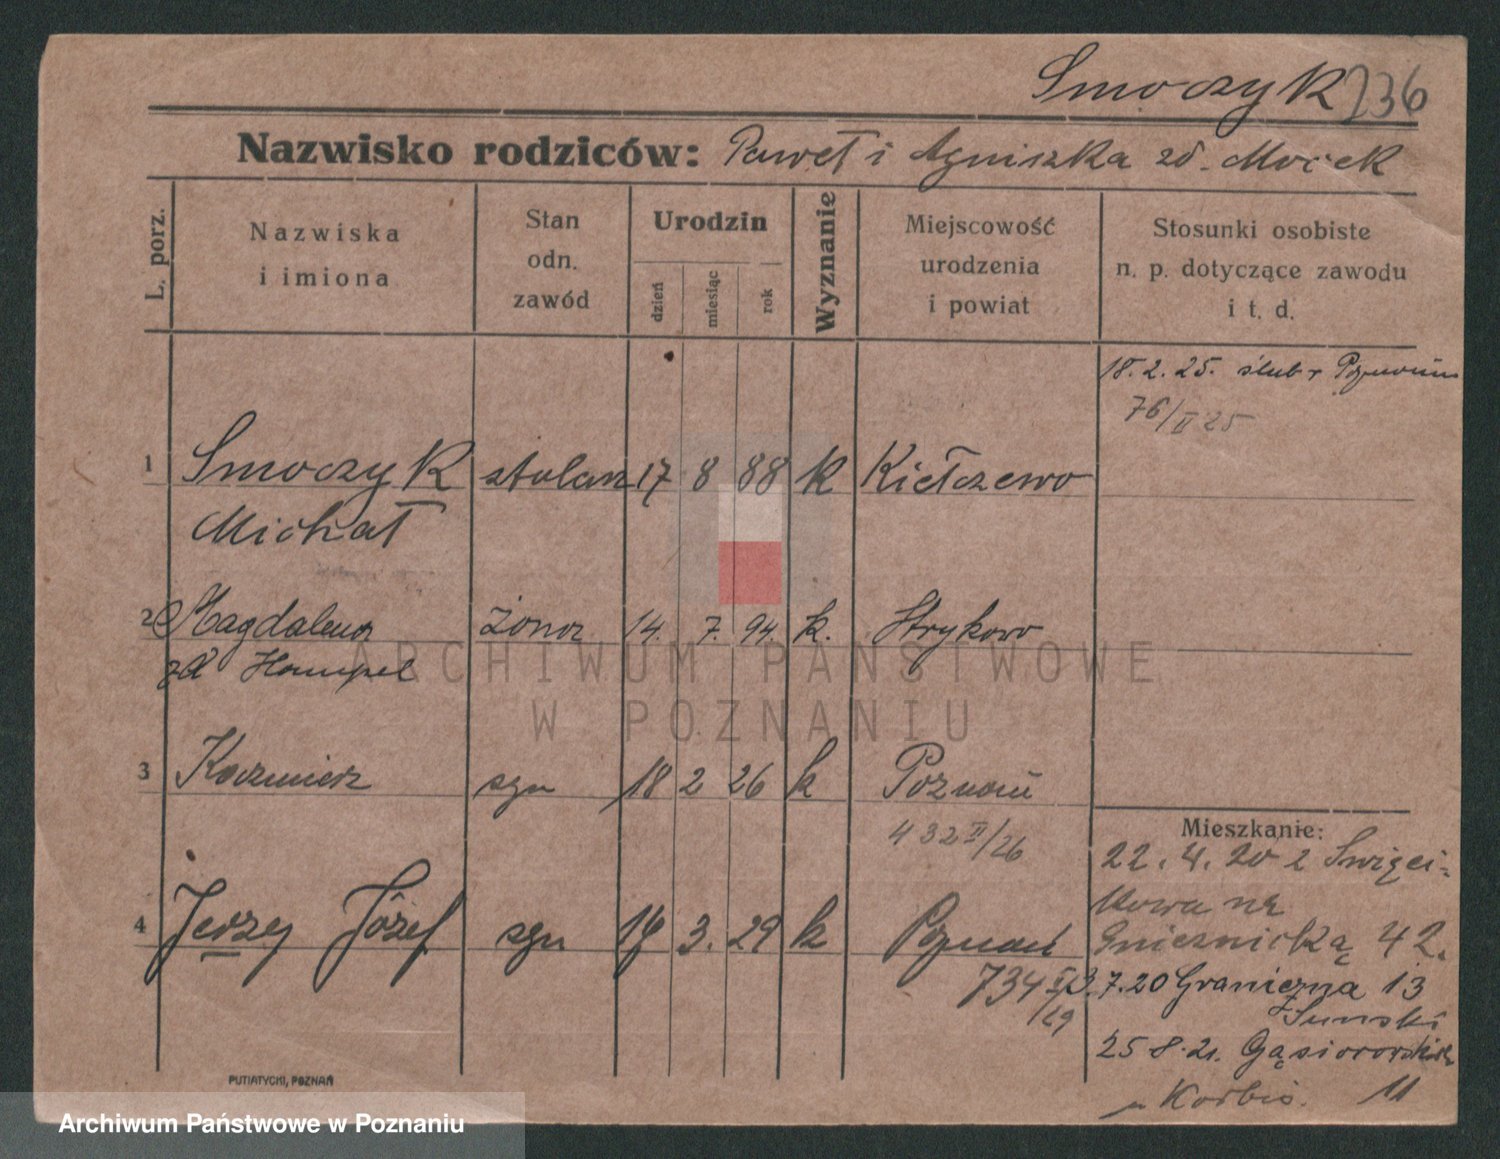 Smoczyk 236
Nazwisko rodziców: Paweł i Agniszka zd. Mocek
L. porz.
Nazwiska
i imiona
Stan
odn.
zawód
Urodzin
dzień
miesiąc
rok
Wyznanie
Miejscowość
urodzenia
i powiat
Stosunki osobiste
n. p. dotyczące zawodu
i t. d.
18.2.25. ślub w Poznaniu
76/II 25
1 Smoczyk stolarz 17 8 88 k Kiełczewo
Michał
2 Magdalena żona 14. 7. 94. k. Strykowo
zd Hampel
ARCHIWUM PAŃSTWOWE
W POZNANIU
3 Kazmierz syn 18 2 26 k Poznań
432 II/26
4 Jerzy Józef syn 19 3. 29 k Poznań
734 I/29
Mieszkanie:
22.4.20 z Święci-
chowa na
Gnieźnicką 42.
3.7.20 Graniczna 13
25 8.21. Gąsiorowskich
u Korbis. 11
PUTIATYCKI, POZNAŃ
Archiwum Państwowe w Poznaniu